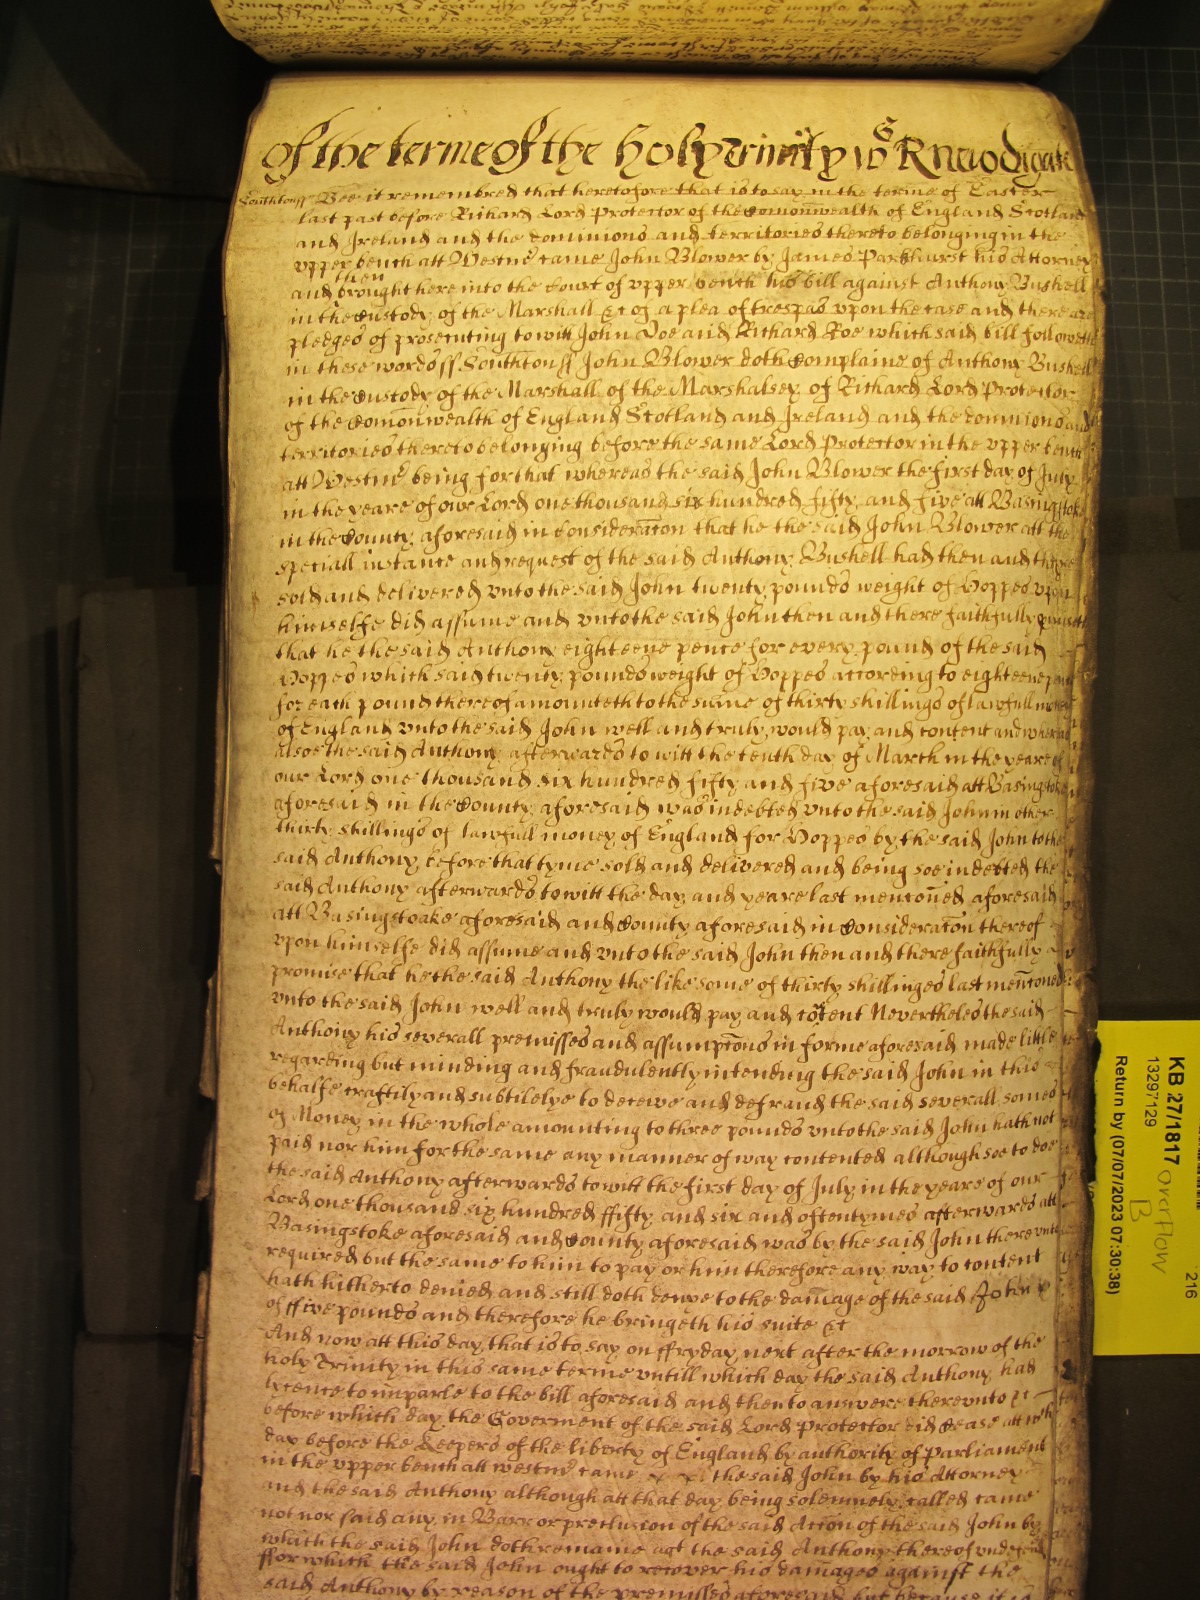 of the terme of the Holy Trinity 1659 R Newdigate
Southtonss Bee it remembred that heretofore that is to say in the terme of Easter
last past before Richard Lord Protector of the Comonwealth of England Scotland
and Ireland and the dominions and territories thereto belonging in the
vpper bench att Westmr came John Blower by James Parkhurst his Attorney
then
and brought here into the Court of vpper bench his bill against Anthony Bushell
in the Custody of the Marshall &c of a plea of trespas vpon the case and there are
pledges of prosecuting to witt John Doe and Richard Roe which said bill followeth
in these words ss Southtonss John Blower doth Complaine of Anthony Bushell
in the Custody of the Marshall of the Marshalsey of Richard Lord Protector
of the Comonwealth of England Scotland and Ireland and the dominions and
territories thereto belonging before the same Lord Protector in the vpper bench
att Westmr being for that whereas the said John Blower the first day of July
in the yeare of our Lord one thousand six hundred fifty and five att Basingstoke
in the County aforesaid in Consideracon that he the said John Blower att the
speciall instance and request of the said Anthony Bushell had then and there
sold and delivered vnto the said John twenty pounds weight of Hoppes vpon
himselfe did assume and vnto the said John then and there faithfully promise
that he the said Anthony eighteene pence for every pound of the said
Hoppes which said twenty pounds weight of Hoppes according to eighteene pence
for each pound thereof amounteth to the sume of thirty shillings of lawfull money
of England vnto the said John well and truly would pay and content and whereas
alsoe the said Anthony afterwards to witt the tenth day of March in the yeare of
our Lord one thousand six hundred fifty and five aforesaid att Basingstoke
aforesaid in the County aforesaid was indebted vnto the said John in other
thirty shillings of lawfull money of England for Hoppes by the said John to the
said Anthony before that tyme sold and delivered and being soe indebted the
said Anthony afterwards to witt the day and yeare last mentoned aforesaid
att Basingstoake aforesaid and County aforesaid in Consideracon thereof
vpon himselfe did assume and vnto the said John then and there faithfully
promise that he the said Anthony the like some of thirty shillinges last mentoned
vnto the said John well and truly would pay and content Neverthelesthe said
Anthony his severall premisses and assumptons in forme aforesaid made little
regarding but minding and fraudulently intending the said John in this
behalfe craftily and subtilelye to deceive and defraud the said severall somes
of Money in the whole amounting to three pounds vnto the said John hath not
paid nor him for the same any manner of way contented although soe to doe
the said Anthony afterwards to witt the first day of July in the yeare of our
Lord one thousand six hundred ffifty and six and oftentymes afterwards att
Basingstoke aforesaid and County aforesaid was by the said John therevnto
required but the same to him to pay or him therefore any way to content
hath hitherto denied and still doth denye to the damage of the said John
of ffive pounds and therefore he bringeth his suite &c
And now att this day that is to say on ffryday next after the morrow of the
holy Trinity in this same terme vntill which day the said Anthony had
lycence to imparle to the bill aforesaid and then to answere therevnto &c
before which day the Goverment of the said Lord Protector did Cease att wch
day before the Keepers of the liberty of England by authority of Parliament
in the vpper bench att westmr came the said John by his Attorney
and the said Anthony although att that day being solemnely called came
not nor said any in Barr or preclusion of the said Acton of the said John by
which the said John doth remaine agt the said Anthony thereof vndefended
ffor which the said John ought to recover his damages against the
said Anthony by reason of the premisses aforesaid but because it is
KB 27/1817 overflow
B
13297129
216
Return by (07/07/2023 07:30:38)